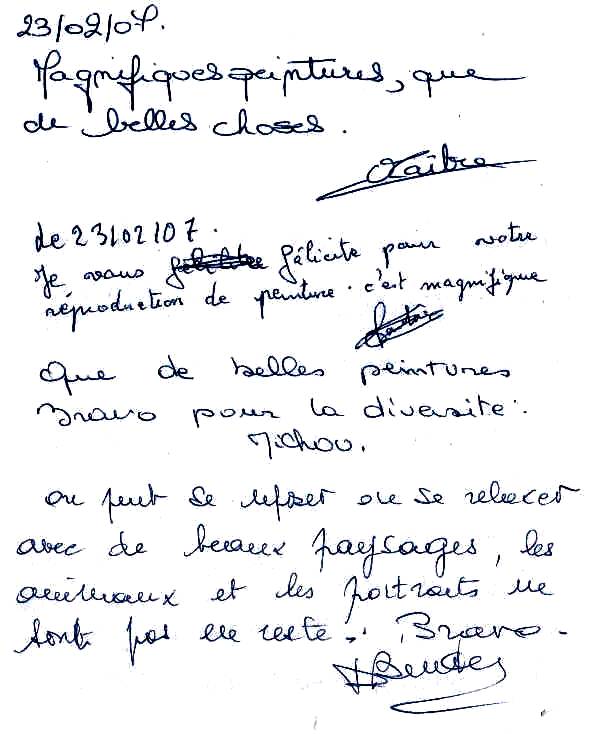 23/02/07.
Magnifiques peintures, que
de belles choses.
de 23/02/07.
Je vous félicite pour votre
réproduction de peinture. c'est magnifique
Que de belles peintures
Bravo pour la diversité.
Michou.
on peut se reposer ou se relaxer
avec de beaux paysages, les
animaux et les portraits ne
sont pas en reste! Bravo.